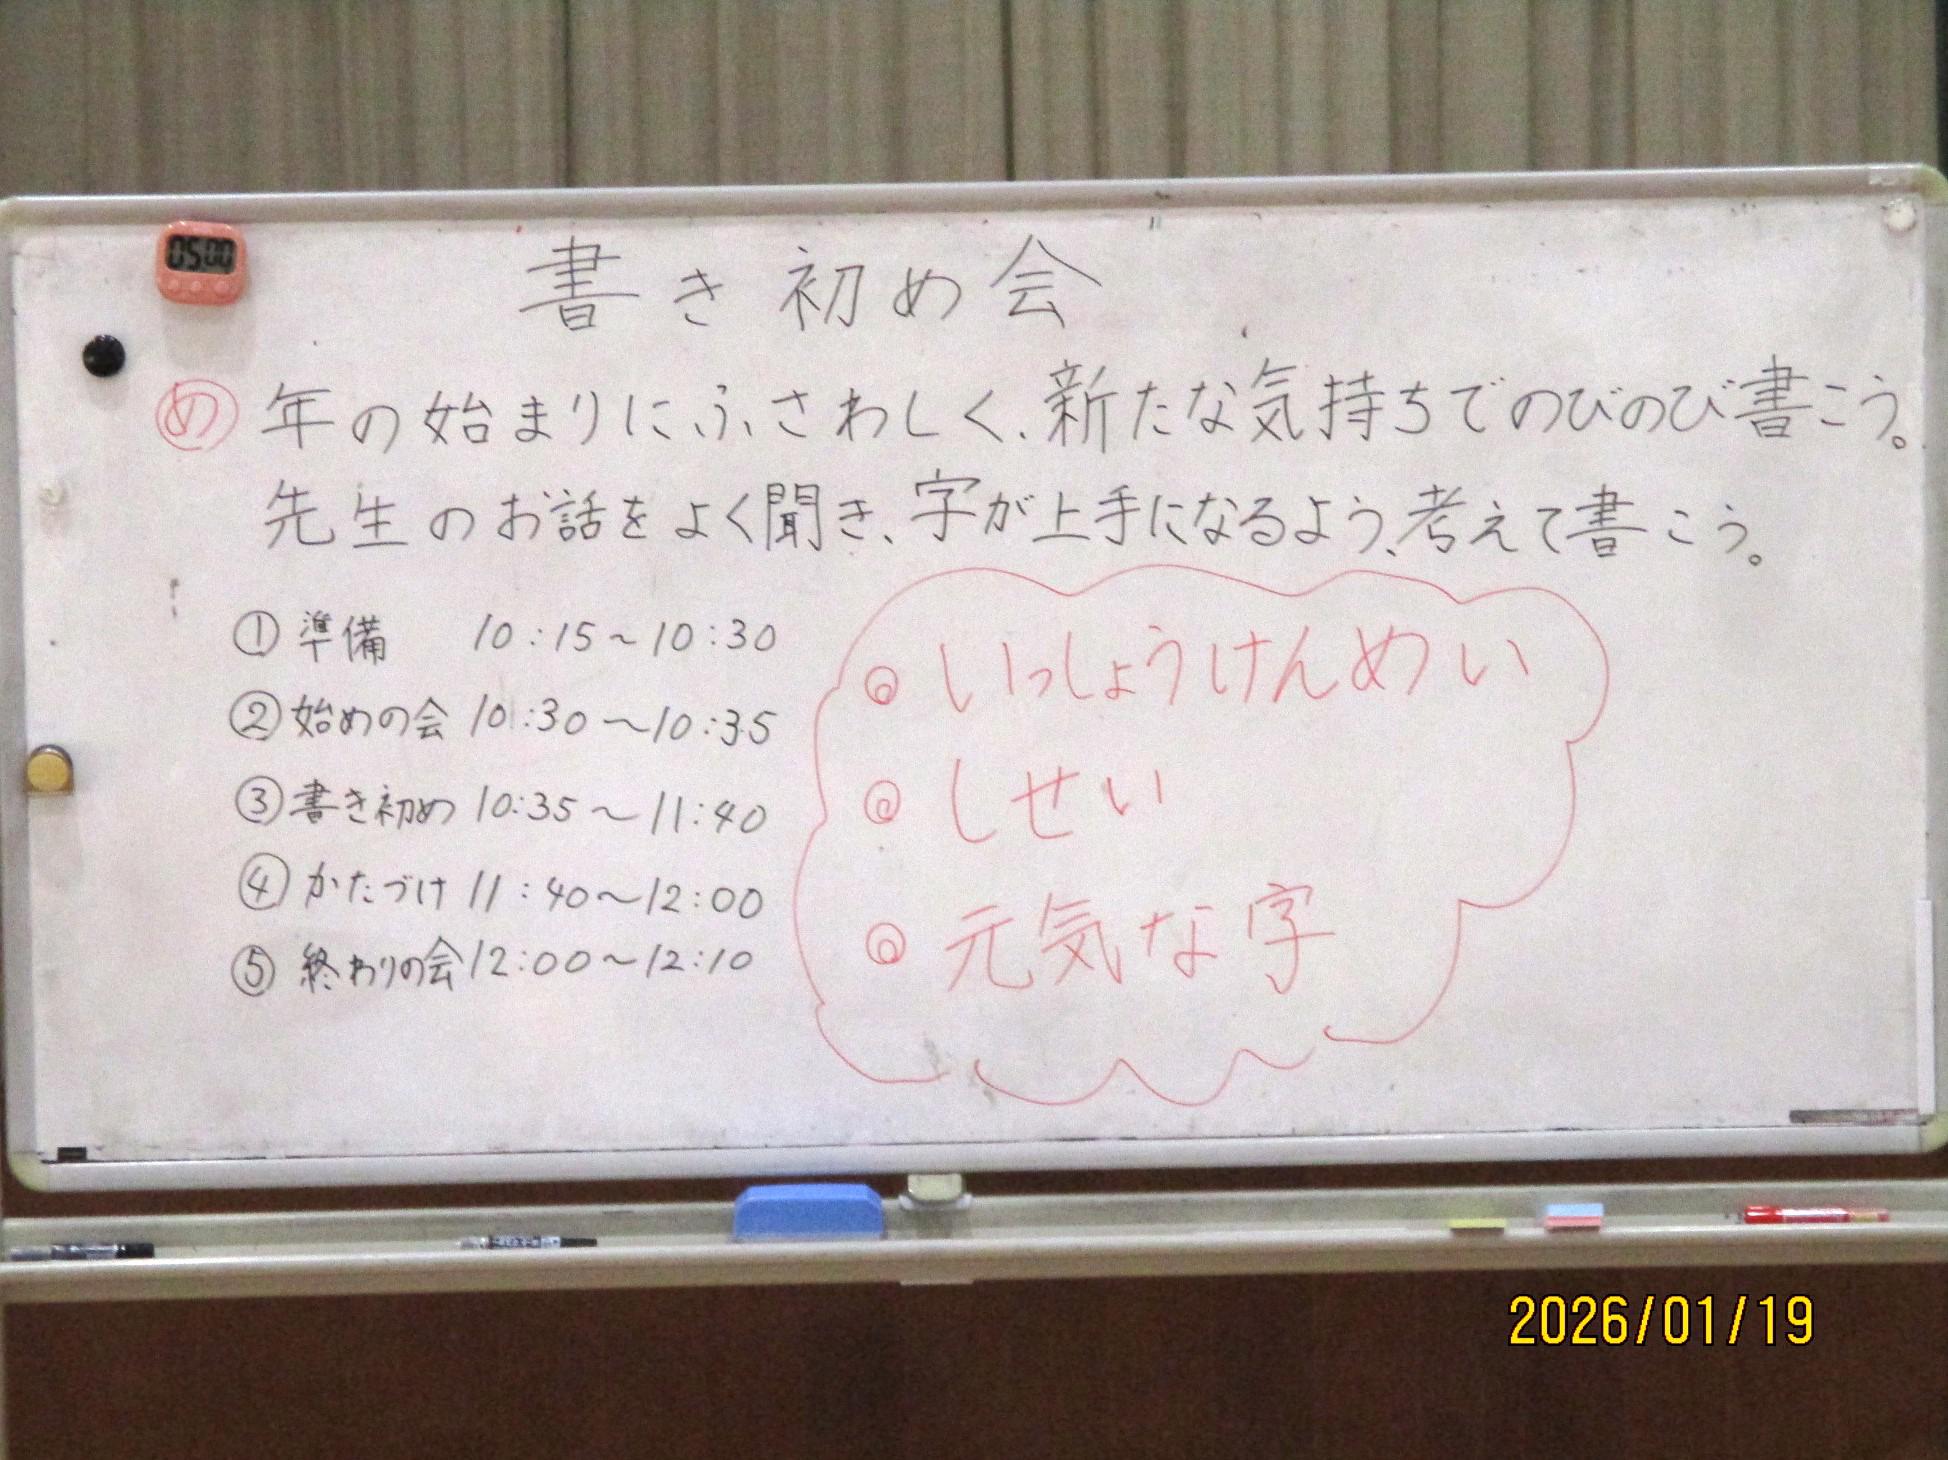 05:00
書き初め会
め 年の始まりにふさわしく、新たな気持ちでのびのび書こう。
先生のお話をよく聞き、字が上手になるよう、考えて書こう。
① 準備 10:15～10:30
② 始めの会 10:30～10:35
③ 書き初め 10:35～11:40
④ かたづけ 11:40～12:00
⑤ 終わりの会 12:00～12:10
◎ いっしょうけんめい
◎ しせい
◎ 元気な字
2026/01/19